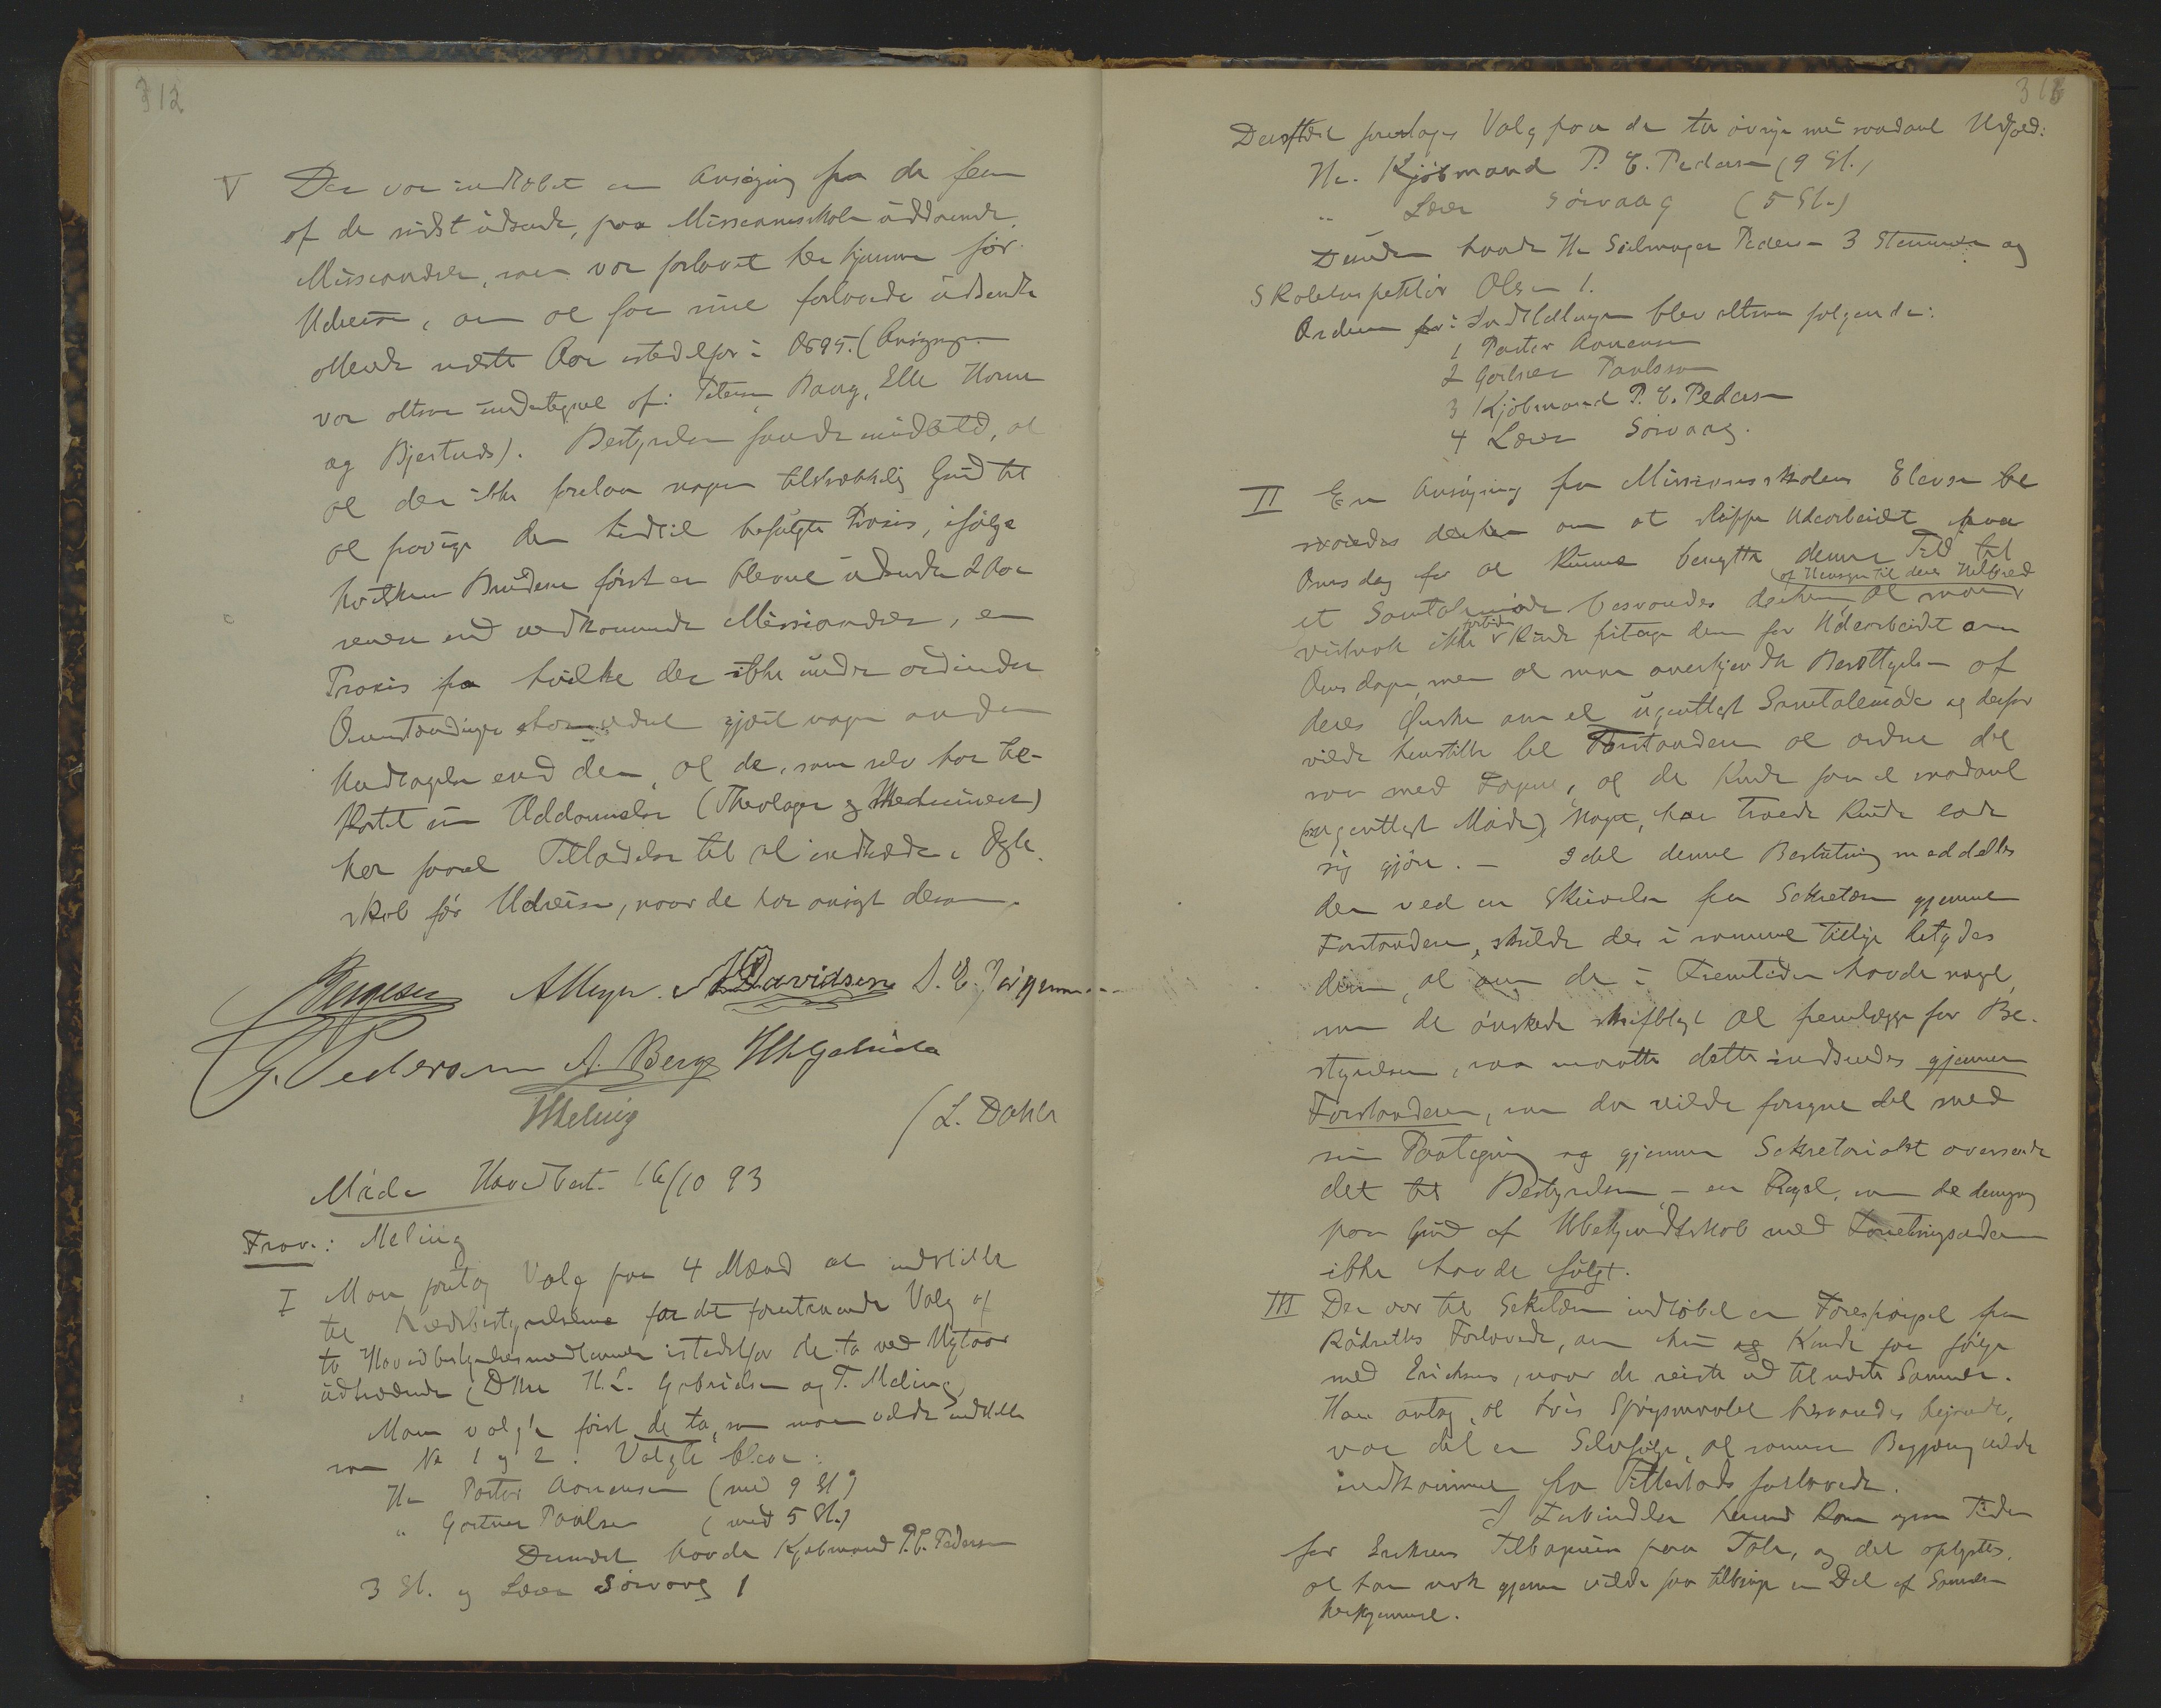 312
V Der var indløbet en Ansøgning fra de fem
af de sidst udsendte, paa Missionsskolen uddannede
Missionærer, som var forlovet her hjemme før
Udreisen, om at faa sine forlovede udsendte
allerede næste Aar istedetfor i 1895. (Ansøgningen
var altsaa undertegnet af: Petersen, Borg, Elle, Horne
og Bjertnæs). Bestyrelsen fandt imidlertid, at
at der ikke forelaa nogen tilstrækkelig Grund til
at fravige den hidtil befulgte Praxis, ifølge
hvilken Brudene først er blevne udsendte 2 Aar
senere end vedkommende Missionærer, en
Praxis fra hvilke der ikke under ordinære
Omstændigheder har været gjort nogen anden
Undtagelse end den, at de, som selv har be-
kostet sin Uddannelse (Theologer og Medicinere)
her faaet Tilladelse til at indtræde i Ægte-
skab før Udreisen, naar de har ansøgt derom.
Borgesen AMeyer. A Davidsen S. E. Jørgensen
G. Pedersen A. Berg HLGabrielsen
TMeling / L. Dahle
Møde Hovedbest. 16/10 93
Frav.: Meling
I Man foretog Valg paa 4 Mænd at indstille
til Kredsbestyrelserne for det forestaaende Valg af
to Hovedbestyrelsesmedlemmer istedetfor de to ved Nytaar
udtrædende (DHrr H. L. Gabrielsen og T. Meling)
Man valgte først de to, som man vilde indstille
som No 1 og 2. Valgte blev:
Hr Pastor Aanensen (med 9 St)
" Gartner Paulsen (med 5 St.)
Desuden havde Kjøbmand P. E. Pedersen
3 St. og Lærer Sørvaag 1
313
Derefter foretoges Valg paa de to øvrige med saadant Udfald:
Hr. Kjøbmand P. E. Pedersen (9 St.)
" Lærer Sørvaag (5 St.)
Desuden havde Hr Seilmager Pedersen 3 Stemmer og
Skoleinspektør Olsen 1.
Ordenen i Indstillingen blev altsaa følgende:
1 Pastor Aanensen
2 Gartner Paulsen
3 Kjøbmand P. E. Pedersen
4 Lærer Sørvaag.
II En Ansøgning fra Missionsskolens Elever be
svaredes derhen om at slippe Udearbeidet paa
Onsdag for at kunne benytte denne Tid til
et Samtalemøde besvaredes derhen, at man
af Hensyn til deres Helbred
vistnok ikke fortiden kunde fritage dem for Udearbeidet om
Onsdagen, men at man anerkjendte Berettigelsen af
deres Ønske om et ugentligt Samtalemøde og derfor
vilde henstille til Forstanderen at ordne det
saa med Fagene, at de kunde faa et saadant
(ugentligt Møde), Noget, han troede kunde lade
sig gjøre. – Idet denne Beslutning meddeltes
dem ved en Skrivelse fra Sekretæren gjennem
Forstanderen, skulde der i samme tillige betydes
dem, at om de i Fremtiden havde noget,
som de ønskede skriftligt at fremlægge for Be-
styrelsen, saa maatte dette indsendes gjennem
Forstanderen, som da vilde forsyne det med
sin Paategning og gjennem Sekretariatet oversende
det til Bestyrelsen – en Regel, som de dennegang
paa Grund af Ubekjendtskab med Forretningsordenen
ikke havde fulgt.
III Der var til Sekretæren indløbet en Forespørgsel fra
Rødseths Forlovede, om hun kunde faa følge
med Eriksens, naar de reiste ud til næste Sommer.
Han antog, at hvis Spørgsmaalet besvaredes bejaende,
var det en Selvfølge, at samme Begjæring vilde
indkomme fra Fillerstads forlovede.
I Forbindelse hermed kom ogsaa Tiden
for Eriksens Tilbagereise paa Tale, og det oplystes,
at han nok gjerne vilde faa tilbringe en Del af Sommeren
herhjemme.